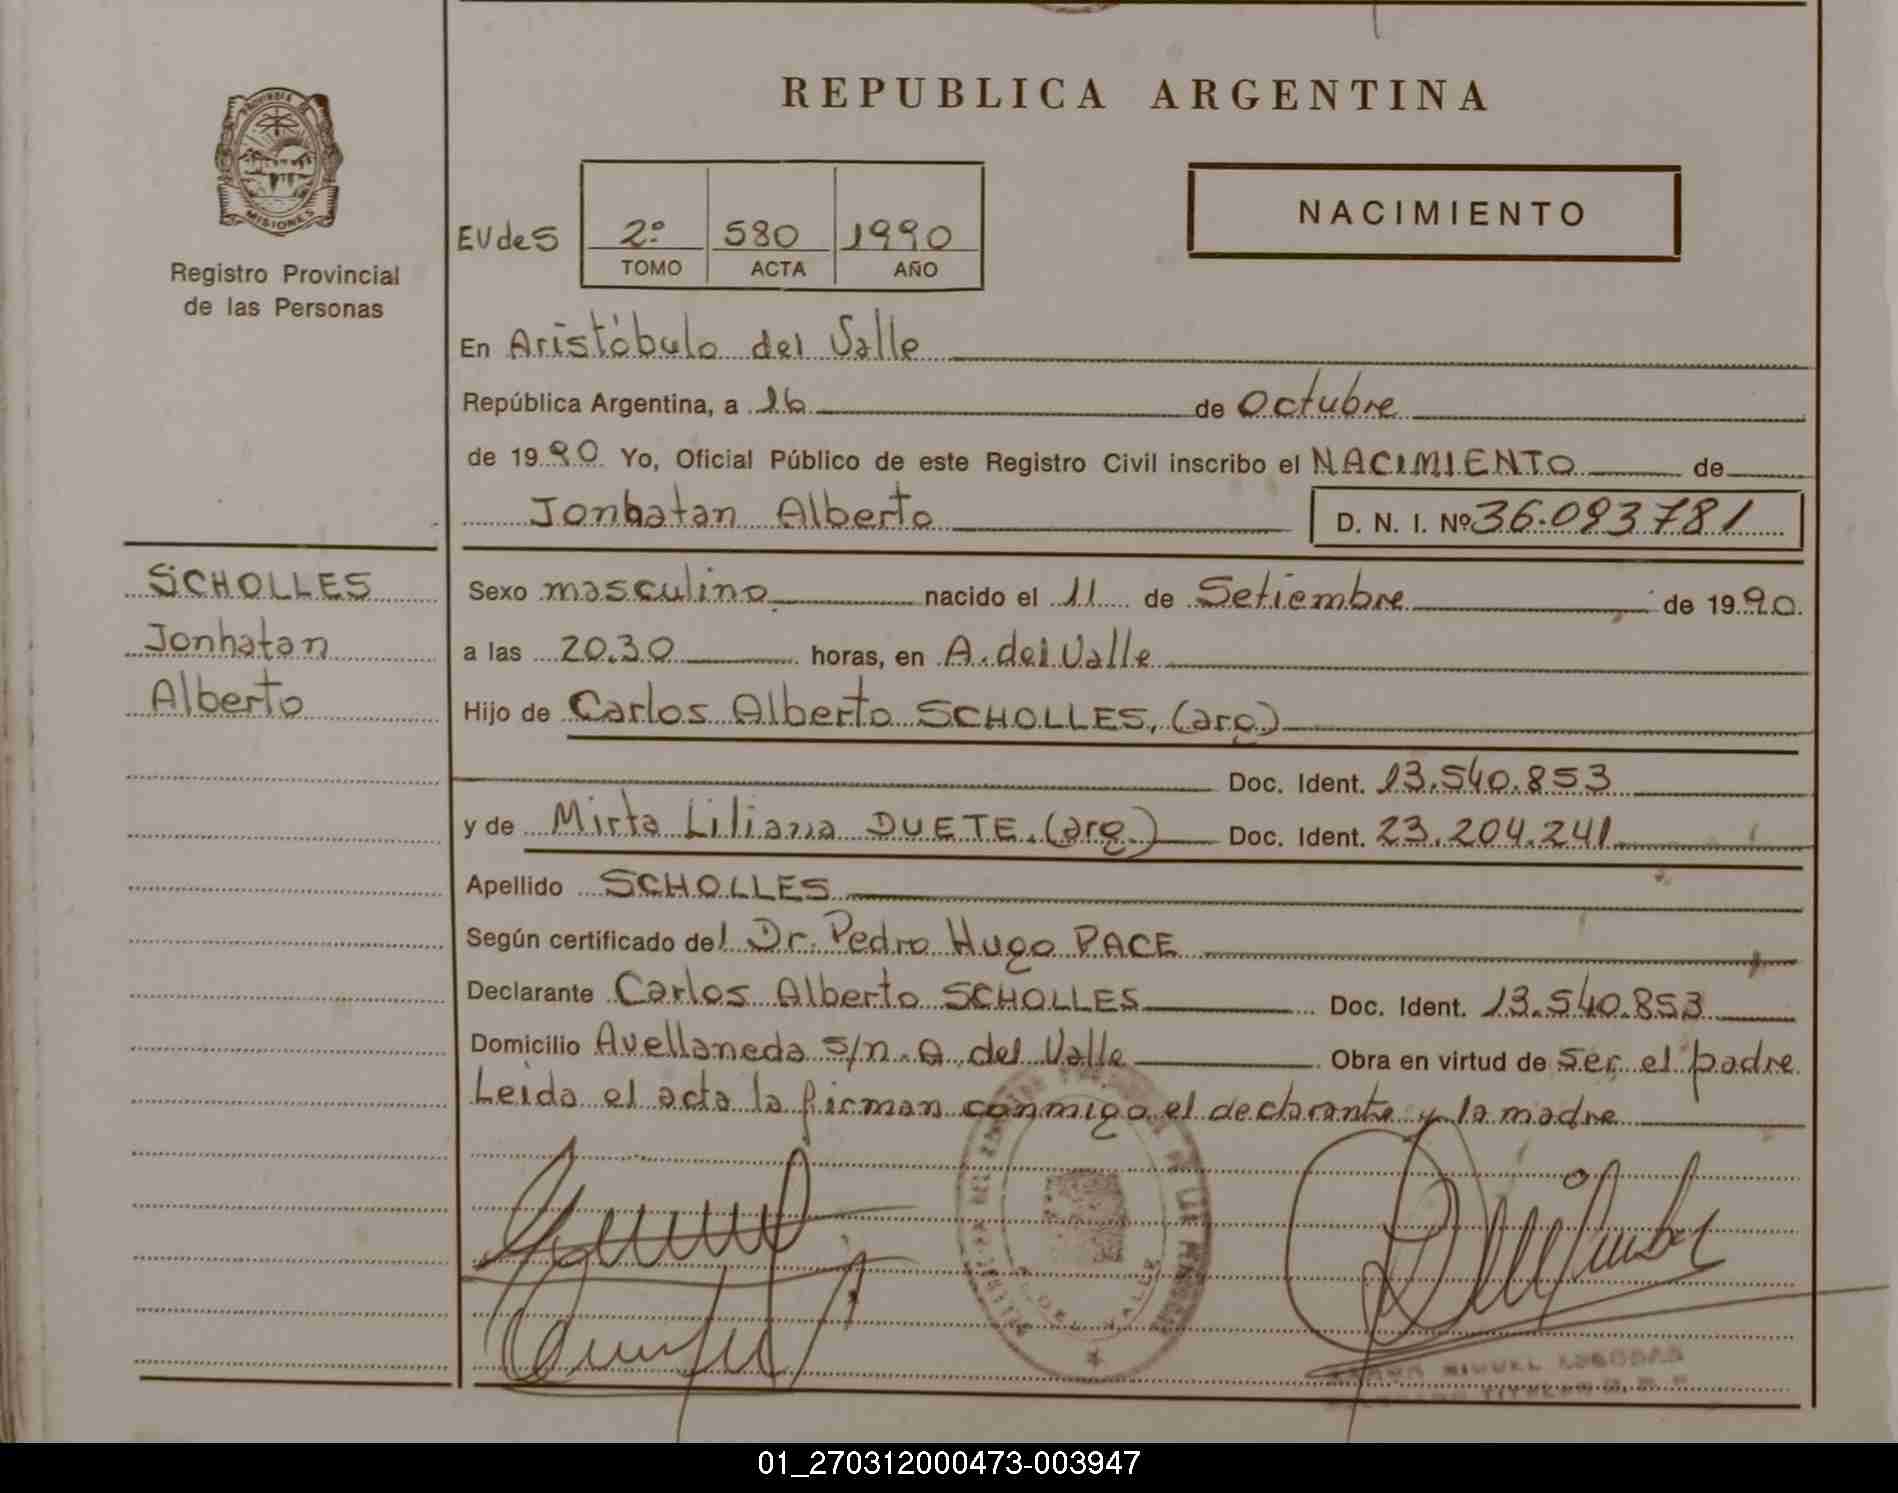 REPUBLICA ARGENTINA
PROVINCIA DE
MISIONES
Registro Provincial
de las Personas
EVdeS 2º 580 1990
TOMO ACTA AÑO
NACIMIENTO
En Aristóbulo del Valle
República Argentina, a 16 de Octubre
de 1990 Yo, Oficial Público de este Registro Civil inscribo el NACIMIENTO de
Jonhatan Alberto D. N. I. Nº 36.093781
SCHOLLES
Jonhatan
Alberto
Sexo masculino nacido el 11 de Setiembre de 1990.
a las 20.30 horas, en A. del Valle
Hijo de Carlos Alberto SCHOLLES, (arg)
Doc. Ident. 13.540.853
y de Mirta Liliana DUETE (arg.) Doc. Ident. 23.204.241
Apellido SCHOLLES
Según certificado del Dr. Pedro Hugo PACE
Declarante Carlos Alberto SCHOLLES Doc. Ident. 13.540.853
Domicilio Avellaneda s/n. A. del Valle Obra en virtud de ser el padre
Leida el acta la firman conmigo el declarante y la madre
MIGUEL
01_270312000473-003947